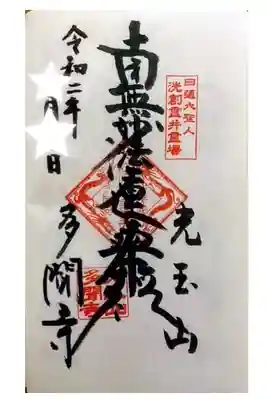 日蓮大聖人
洗創霊井霊場
光玉山
南無妙法蓮華経
令和二年
月 日
多聞寺